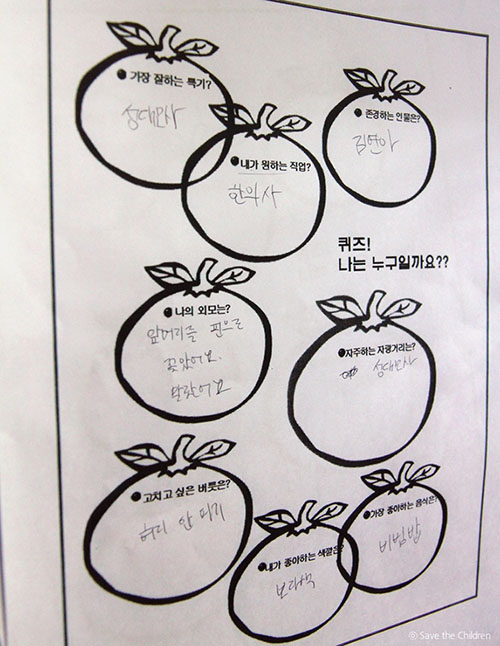 ● 가장 잘하는 특기?
성대모사
● 내가 원하는 직업?
한의사
● 존경하는 인물은?
김연아
퀴즈!
나는 누구일까요??
● 나의 외모는?
앞머리를 핀으로
꽂았어요.
말랐어요
● 자주하는 자랑거리는?
성대모사
● 고치고 싶은 버릇은?
허리 안 펴기
● 내가 좋아하는 색깔은?
보라색
● 가장 좋아하는 음식은?
비빔밥
© Save the Children